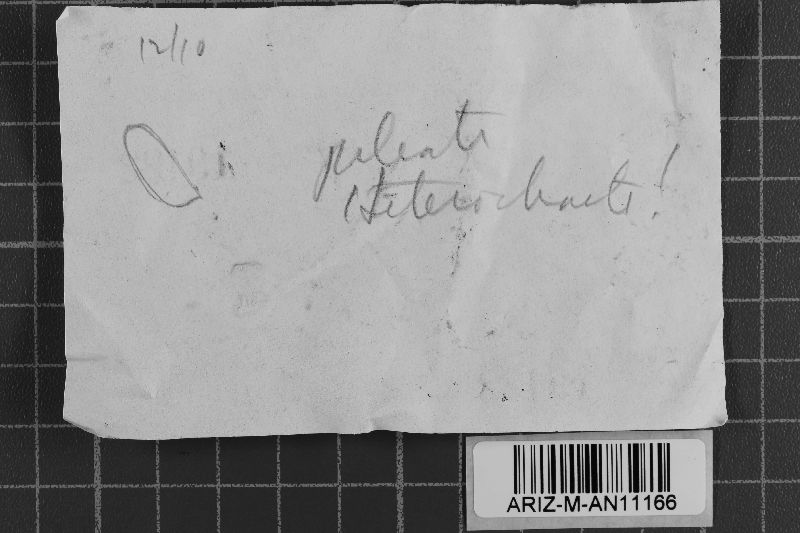 12/10
pileate
Heterochaete!
ARIZ-M-AN11166